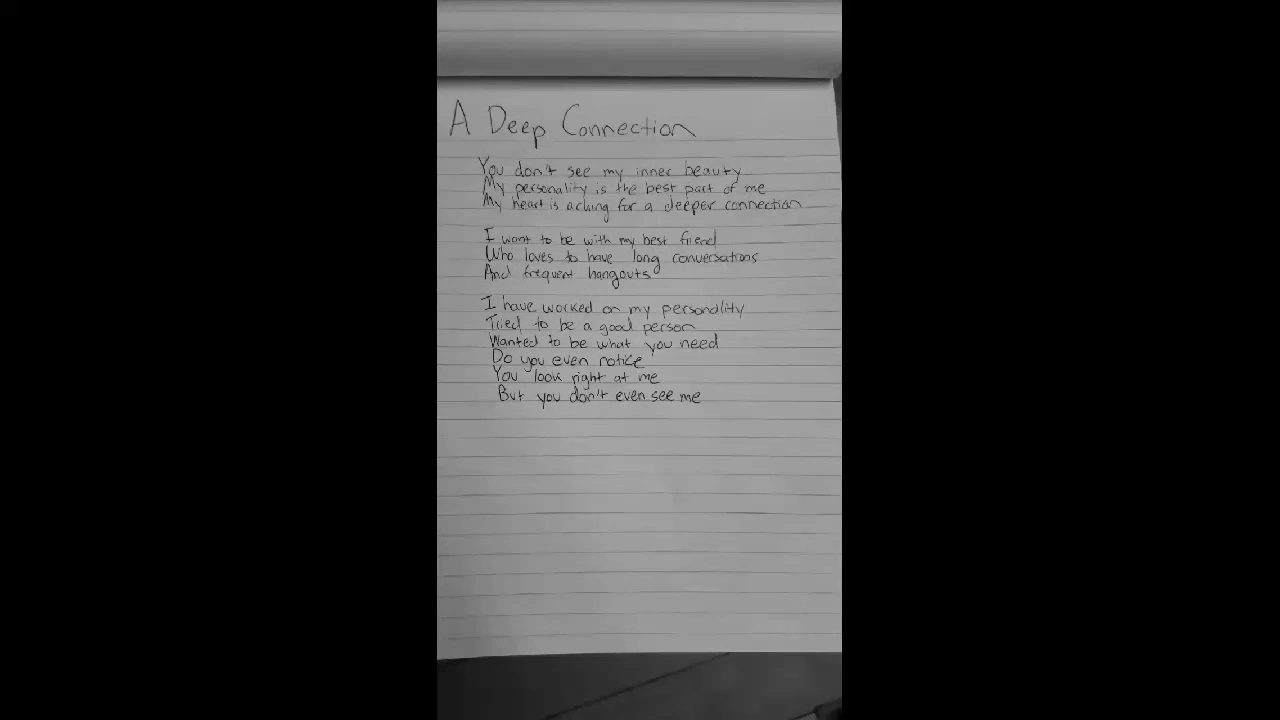 A Deep Connection
You don't see my inner beauty
My personality is the best part of me
My heart is aching for a deeper connection
I want to be with my best friend
Who loves to have long conversations
And frequent hangouts
I have worked on my personality
Tried to be a good person
Wanted to be what you need
Do you even notice
You look right at me
But you don't even see me